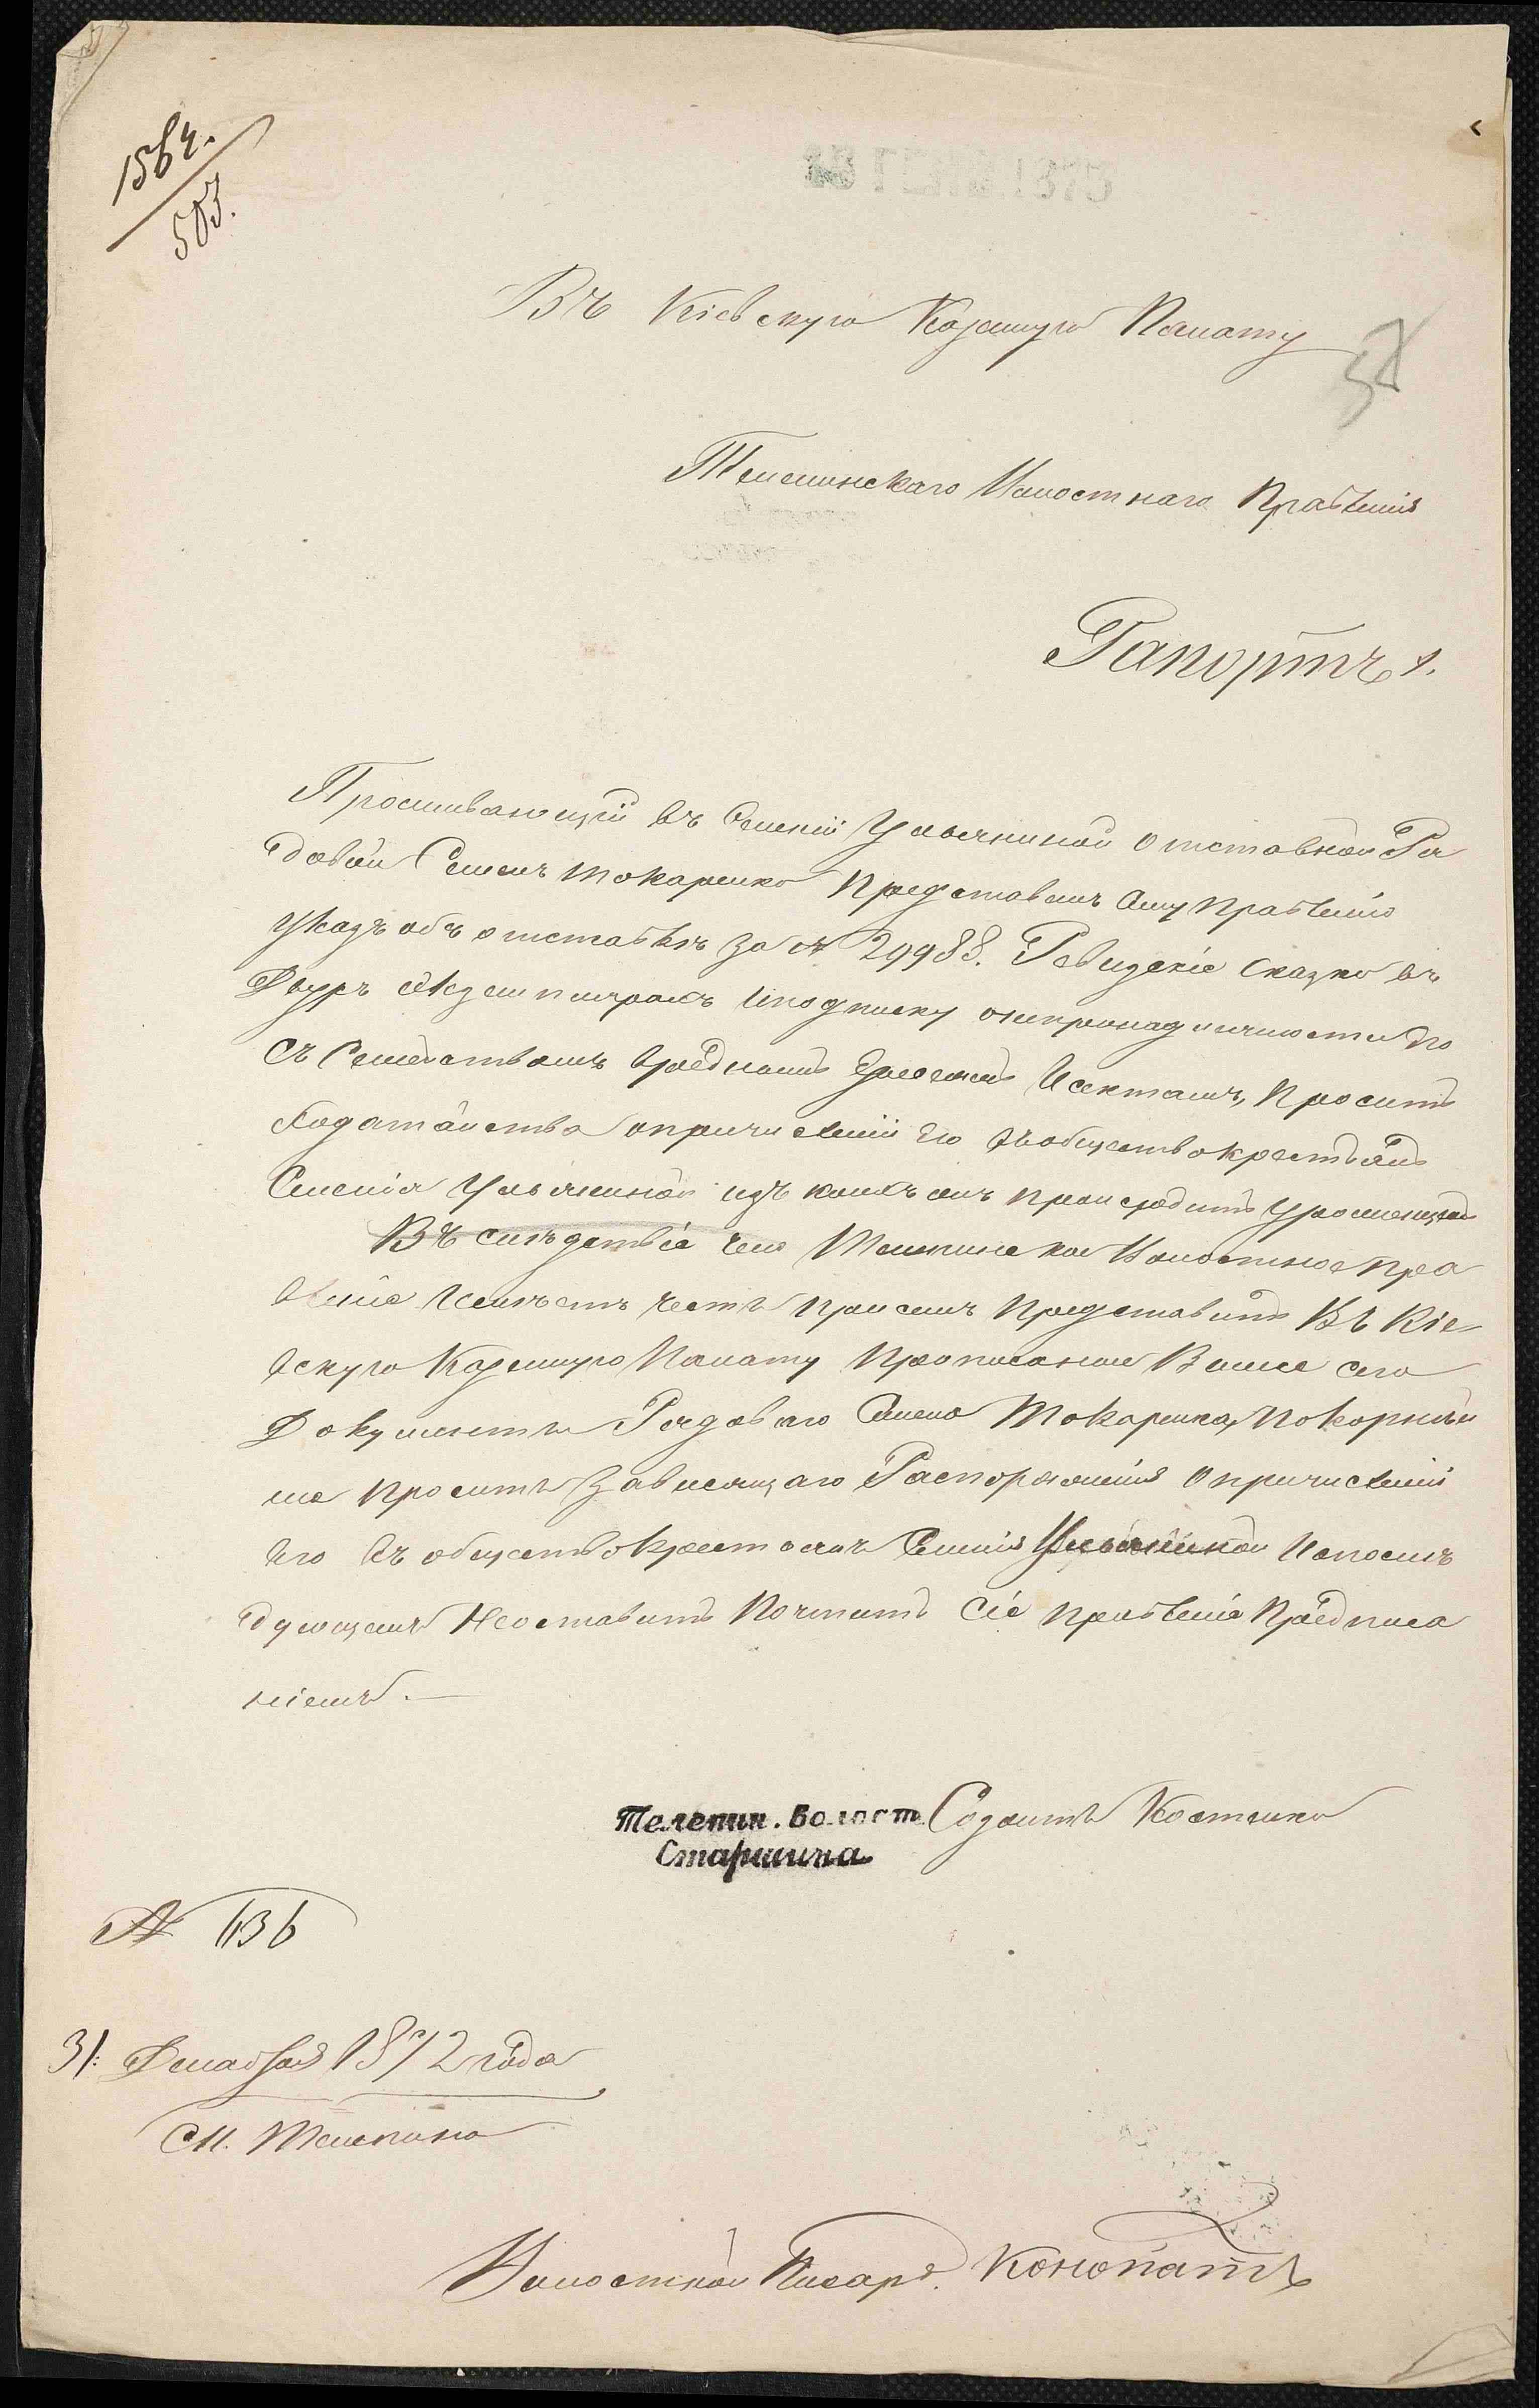 158 ч.
503.
Въ Кіевскую Казенную Палату
Телепинскаго Волостнаго Правленія
Рапортъ.
Проживающій въ Селеніи Ульяниной Отставной Ря
довой Семенъ Токаренко Представилъ Сему Правленію
Указъ объ отставкѣ за № 29988. Ревизскіе Сказки въ
Двухъ Экземплярахъ и подписку онепринадлежности его
Съ Семействомъ Вреднымъ Ересямъ И сектамъ, Проситъ
Ходатайства опричисленіи Его въ общество крестьянъ
Селенія Ульяниной изъ коихъ онъ происходитъ уроженцемъ
Въ слѣдствіе чего Телепинское Волостное Пра
вленіе Имѣетъ честь при семъ Представить Въ Кіе
вскую Казенную Палату Прописанные Выше сего
Документы Рядоваго Семена Токаренка, Покорнѣй
ше просить зависящаго Распоряженія О причисленіи
Его въ общество Крестьянъ Селенія Ульяниной И о послѣ
дующемъ Неоставить Почтить Сіе правленіе Предписа
ніемъ.—
Телепин. Волост. Созонтъ Костенко
Старшина
№ 636
31. Декабря 1872 года
М. Телепино
Волостной Писарь. Конопатъ